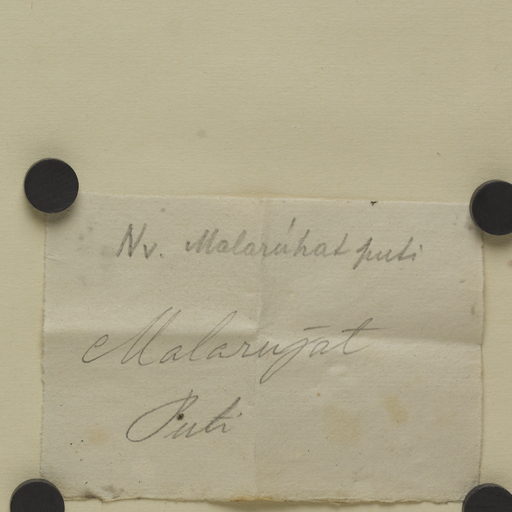 Nv. Malarúhat puti
Malarujat
Puti